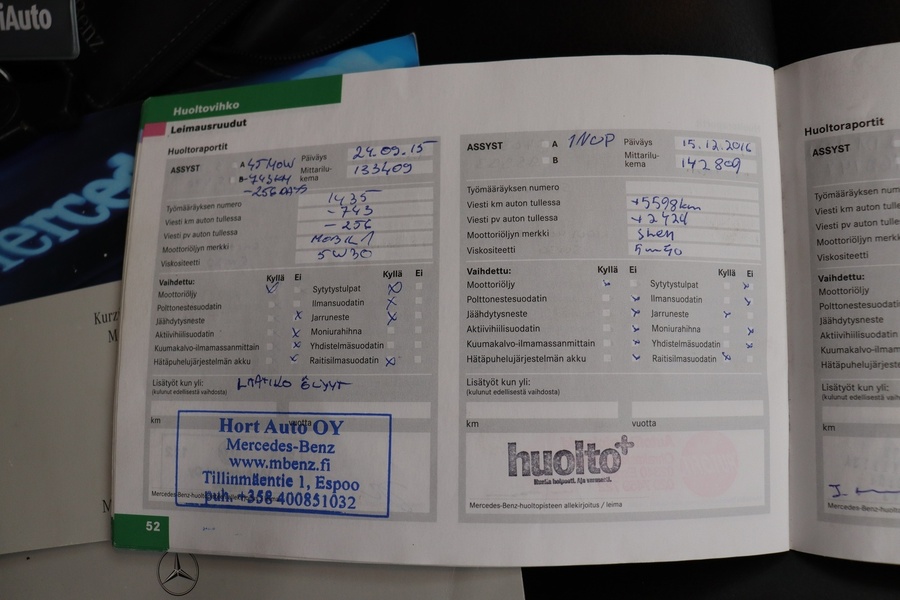 iAuto
Benz
Huoltovihko
Leimausruudut
Huoltoraportit
ASSYST
A 45 MOW
B -743 KM
-256 DAYS
Päiväys 24.09.15
Mittarilu-
kema 133409
Työmääräyksen numero 1435
Viesti km auton tullessa -743
Viesti pv auton tullessa -256
Moottoriöljyn merkki MOBIL 1
Viskositeetti 5W30
Vaihdettu: Kyllä Ei Kyllä Ei
Moottoriöljy Sytytystulpat
Polttonestesuodatin Ilmansuodatin
Jäähdytysneste Jarruneste
Aktiivihiilisuodatin Moniurahihna
Kuumakalvo-ilmamassanmittain Yhdistelmäsuodatin
Hätäpuhelujärjestelmän akku Raitisilmasuodatin
Lisätyöt kun yli: LAATIKO ÖLJYT
(kulunut edellisestä vaihdosta)
km vuotta
Hort Auto OY
Mercedes-Benz
www.mbenz.fi
Tillinmäentie 1, Espoo
puh. +358 400851032
52
ASSYST
A
B
Päiväys 15.12.2016
Mittarilu-
kema 142809
Työmääräyksen numero
Viesti km auton tullessa +5598km
Viesti pv auton tullessa
Moottoriöljyn merkki Shell
Viskositeetti
Vaihdettu: Kyllä Ei Kyllä Ei
Moottoriöljy Sytytystulpat
Polttonestesuodatin Ilmansuodatin
Jäähdytysneste Jarruneste
Aktiivihiilisuodatin Moniurahihna
Kuumakalvo-ilmamassanmittain Yhdistelmäsuodatin
Hätäpuhelujärjestelmän akku Raitisilmasuodatin
Lisätyöt kun yli:
(kulunut edellisestä vaihdosta)
km vuotta
huolto+
Mercedes-Benz-huoltopisteen allekirjoitus / leima
Huoltoraportit
ASSYST
Työmääräyksen nume
Viesti km auton tulle
Viesti pv auton tulle
Moottoriöljyn merkk
Viskositeetti
Vaihdettu:
Moottoriöljy
Polttonestesuodatin
Jäähdytysneste
Aktiivihiilisuodatin
Kuumakalvo-ilmam
Hätäpuhelujärjestel
Lisätyöt kun yli:
(kulunut edellisestä vaih
km
Mercedes-Benz-huoltop
merced
Kurz